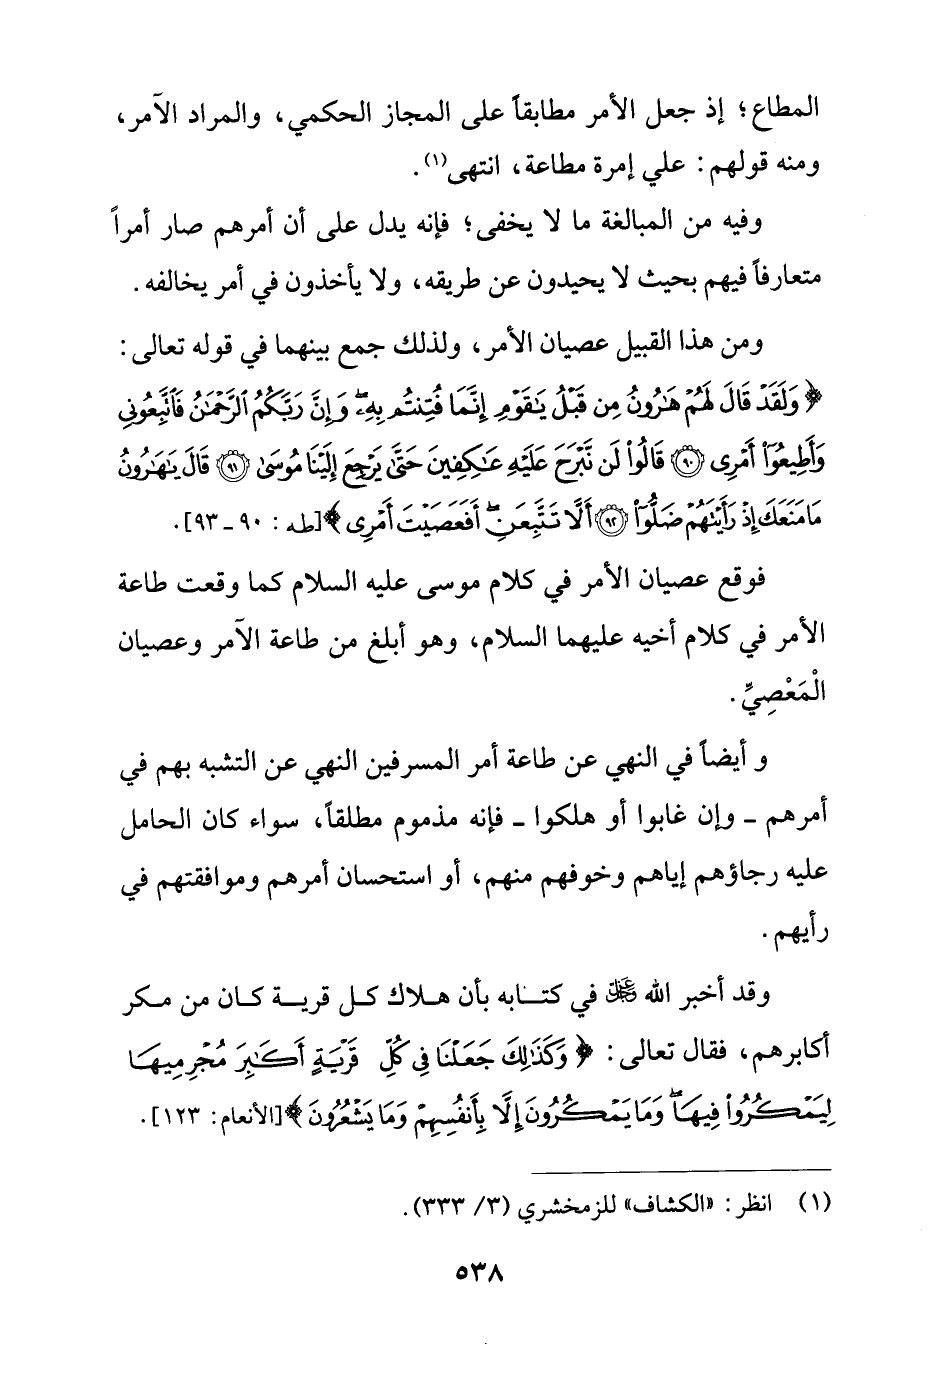 المطاع؛ إذ جعل الأمر مطابقاً على المجاز الحكمي، والمراد الآمر،
ومنه قولهم: علي إمرة مطاعة، انتهى(١).
وفيه من المبالغة ما لا يخفى؛ فإنه يدل على أن أمرهم صار أمراً
متعارفاً فيهم بحيث لا يحيدون عن طريقه، ولا يأخذون في أمر يخالفه.
ومن هذا القبيل عصيان الأمر، ولذلك جمع بينهما في قوله تعالى:
﴿وَلَقَدْ قَالَ لَهُمْ هَٰرُونُ مِن قَبْلُ يَٰقَوْمِ إِنَّمَا فُتِنتُم بِهِۦ ۖ وَإِنَّ رَبَّكُمُ ٱلرَّحْمَٰنُ فَٱتَّبِعُونِى
وَأَطِيعُوٓا۟ أَمْرِى ۝٩٠ قَالُوا۟ لَن نَّبْرَحَ عَلَيْهِ عَٰكِفِينَ حَتَّىٰ يَرْجِعَ إِلَيْنَا مُوسَىٰ ۝٩١ قَالَ يَٰهَٰرُونُ
مَا مَنَعَكَ إِذْ رَأَيْتَهُمْ ضَلُّوٓا۟ ۝٩٢ أَلَّا تَتَّبِعَنِ ۖ أَفَعَصَيْتَ أَمْرِى﴾ [طه: ٩٠ ـ ٩٣].
فوقع عصيان الأمر في كلام موسى عليه السلام كما وقعت طاعة
الأمر في كلام أخيه عليهما السلام، وهو أبلغ من طاعة الآمر وعصيان
الْمَعْصِيِّ.
و أيضاً في النهي عن طاعة أمر المسرفين النهي عن التشبه بهم في
أمرهم ـ وإن غابوا أو هلكوا ـ فإنه مذموم مطلقاً، سواء كان الحامل
عليه رجاؤهم إياهم وخوفهم منهم، أو استحسان أمرهم وموافقتهم في
رأيهم.
وقد أخبر الله عَزَّ وَجَلَّ في كتابه بأن هلاك كل قرية كان من مكر
أكابرهم، فقال تعالى: ﴿وَكَذَٰلِكَ جَعَلْنَا فِى كُلِّ قَرْيَةٍ أَكَٰبِرَ مُجْرِمِيهَا
لِيَمْكُرُوا۟ فِيهَا ۖ وَمَا يَمْكُرُونَ إِلَّا بِأَنفُسِهِمْ وَمَا يَشْعُرُونَ﴾ [الأنعام: ١٢٣].
(١) انظر: «الكشاف» للزمخشري (٣/ ٣٣٣).
٥٣٨